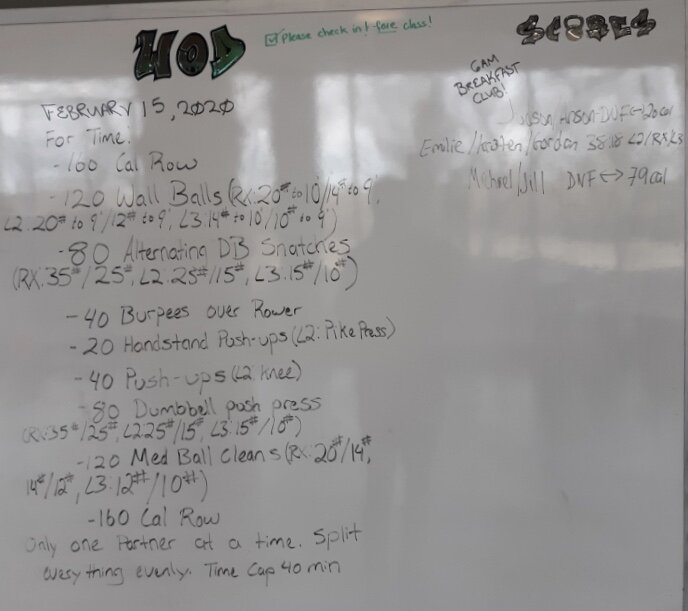 WOD
☑ Please check in before class!
SCORES
6AM
BREAKFAST
CLUB!
FEBRUARY 15, 2020
For Time:
-160 Cal Row
-120 Wall Balls (Rx: 20# to 10'/14# to 9',
L2: 20# to 9'/12# to 9', L3: 14# to 10'/10# to 9')
-80 Alternating DB Snatches
(RX: 35#/25#, L2: 25#/15#, L3: 15#/10#)
-40 Burpees over Rower
-20 Handstand Push-ups (L2: Pike Press)
-40 Push-ups (L2: knee)
-80 Dumbbell push press
(Rx: 35#/25#, L2 25#/15#, L3: 15#/10#)
-120 Med Ball Cleans (Rx: 20#/14#,
14#/12#, L3: 12#/10#)
-160 Cal Row
Only one Partner at a time. Split
everything evenly. Time Cap 40 min
DNF
Emilie/Kristen/Jordan 38:18 L2/RX/L3
Michael/Jill DNF <-> 79 cal